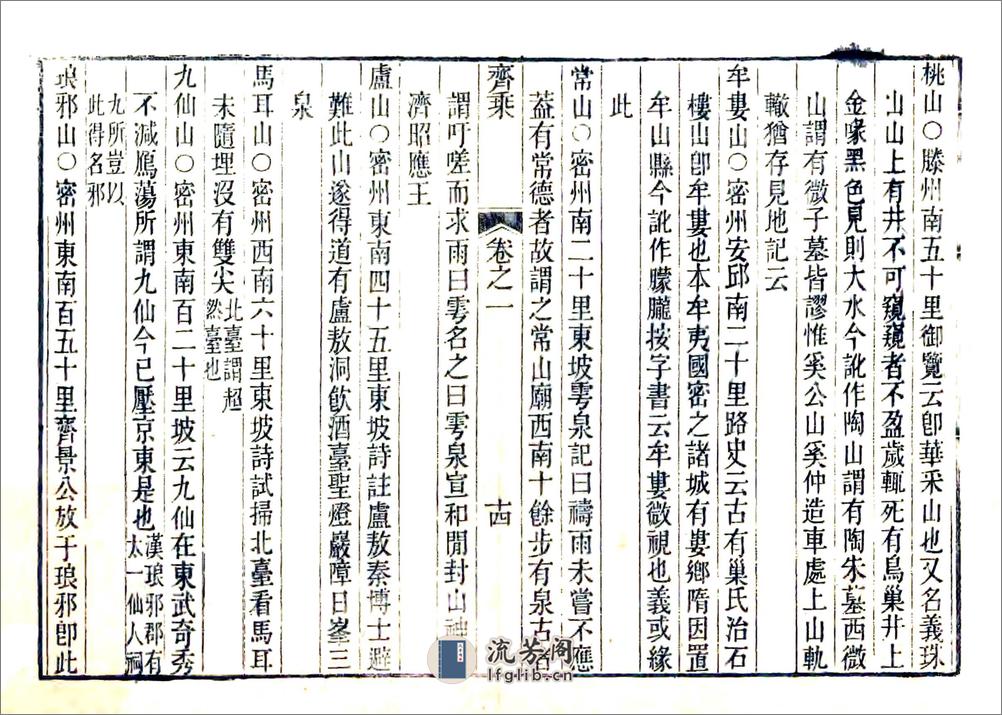 桃山○滕州南五十里御覽云卽華采山也又名義珠
山山上有井不可窺窺者不盈歲輒死有鳥巢井上
金喙黑色見則大水今訛作陶山謂有陶朱墓西微
山謂有微子墓皆謬惟奚公山奚仲造車處上山軌
轍猶存見地記云
牟婁山○密州安邱南二十里路史云古有巢氏治石
樓山卽牟婁也本牟夷國密之諸城有婁鄉隋因置
牟山縣今訛作朦朧按字書云牟婁微視也義或緣
此
常山○密州南二十里東坡雩泉記曰禱雨未嘗不應
葢有常德者故謂之常山廟西南十餘步有泉古者
齊乘 卷之一 十四
謂吁嗟而求雨曰雩名之曰雩泉宣和閒封山神
濟昭應王
盧山○密州東南四十五里東坡詩註盧敖秦博士避
難此山遂得道有盧敖洞飲酒臺聖燈巖障日峯三
泉
馬耳山○密州西南六十里東坡詩試掃北臺看馬耳
未隨埋沒有雙尖北臺謂超然臺也
九仙山○密州東南百二十里坡云九仙在東武奇秀
不減鴈蕩所謂九仙今已壓京東是也漢琅邪郡有太一仙人祠
九所豈以此得名邪
琅邪山○密州東南百五十里齊景公放于琅邪卽此
流芳阁
lfglib.cn